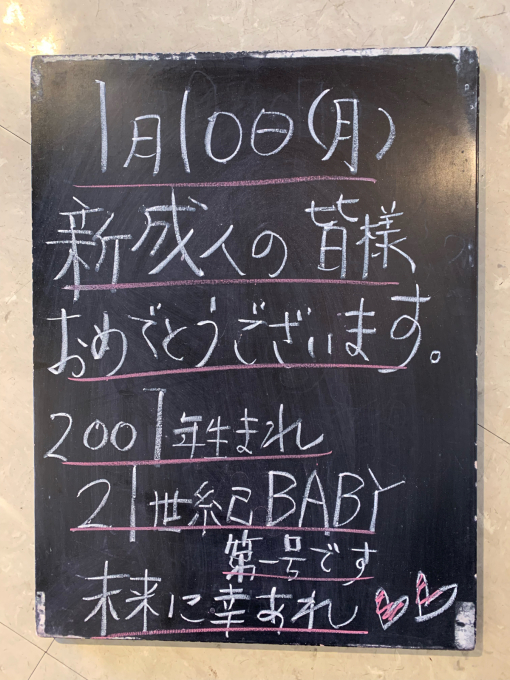 1月10日(月)
新成人の皆様
おめでとうございます。
2001年生まれ
21世紀BABY
第一号です
未来に幸あれ